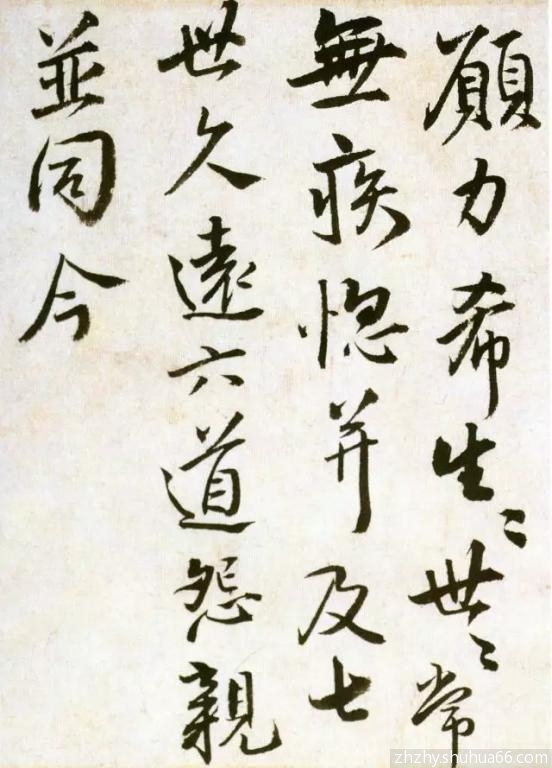 願力希生〻世〻常
無疾惱并及七
世久遠六道怨親
並同今
zhzhy.shuhua66.com